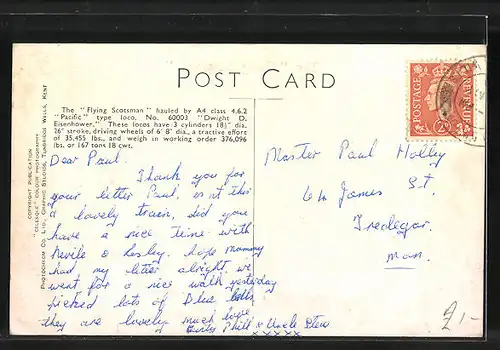 POST CARD
The "Flying Scotsman" hauled by A4 class 4.6.2
"Pacific" type loco. No. 60003 "Dwight D.
Eisenhower." These locos have 3 cylinders 18½" dia.,
26" stroke, driving wheels of 6' 8" dia., a tractive effort
of 35,455 lbs., and weigh in working order 376,096
lbs. or 167 tons 18 cwt.
COPYRIGHT PUBLICATION
PHOTOCHROM CO. LTD., GRAPHIC STUDIOS, TUNBRIDGE WELLS, KENT
POSTAGE REVENUE
Dear Paul.
Thank you for
your letter Paul, isnt this
a lovely train, did you
have a nice time with
Nevile & Lesley. hope mummy
had my letter alright. we
went for a nice walk yesterday
picked lots of Blue bells
they are lovely much love
Phill & Uncle Stew
xxxxx
Master Paul Holley
64 James St.
Tredegar.
Mon.
2/-